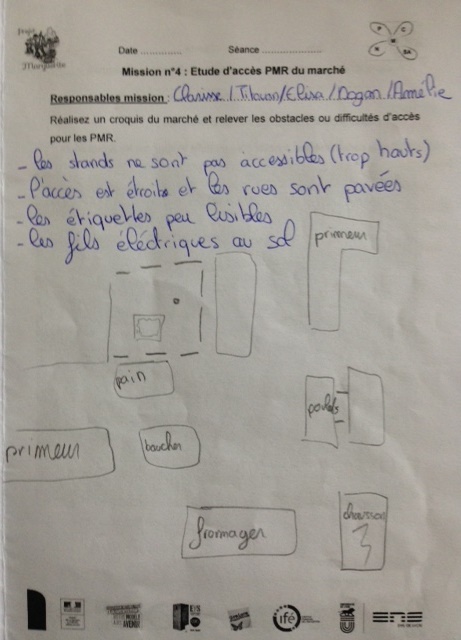 Projet
Marguerite
P C
R SA
Date ............. Séance ....................
Mission n°4 : Etude d'accès PMR du marché
Responsables mission : Clarisse / Titouan / Elisa / Dogan / Amélie
Réalisez un croquis du marché et relever les obstacles ou difficultés d'accès
pour les PMR.
- les stands ne sont pas accessibles (trop hauts)
- l'accès est étroite et les rues sont pavées
- les étiquettes peu lisibles
- les fils éléctriques au sol
primeur
pain
poulets
primeur
boucher
fromager
chausson
ifé
ENS